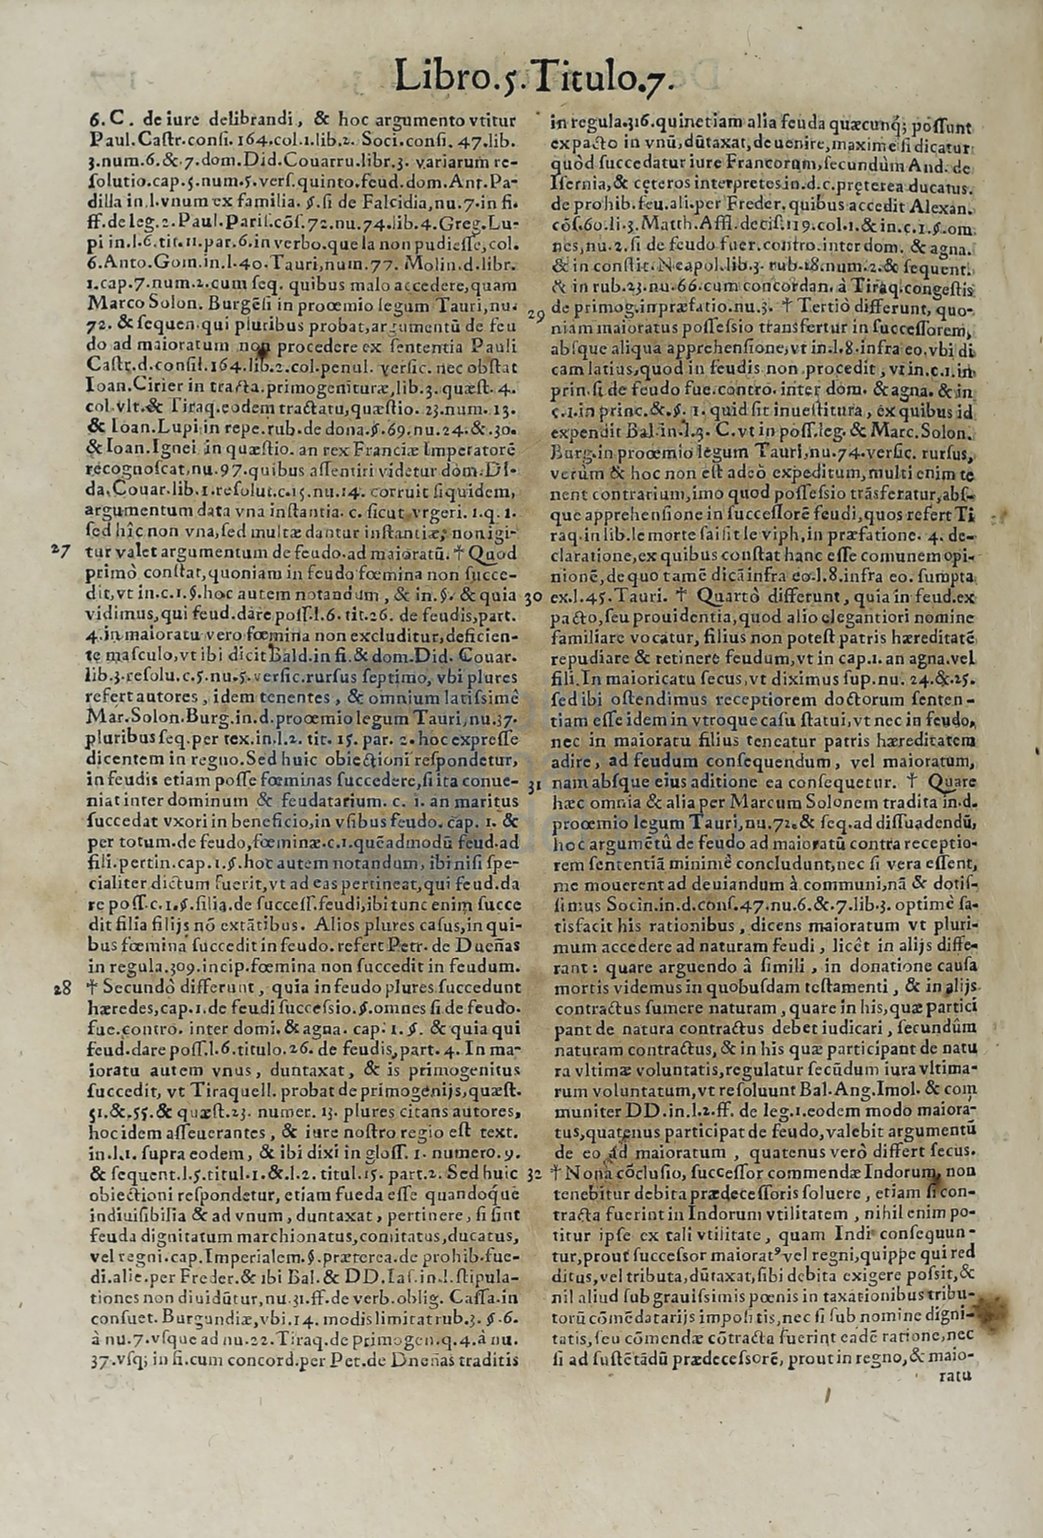 Libro.5.Titulo.7.
6.C. de iure delibrandi, & hoc argumento vtitur
Paul.Castr.consi.164.col.1.lib.2. Soci.consi.47.lib.
3.num.6.&.7.dom.Did.Couarru.libr.3. variarum re-
solutio.cap.5.num.5.vers.quinto.feud.dom.Ant.Pa-
dilla in l.vnum ex familia. §.si de Falcidia,nu.7.in fi.
ff.de leg.2.Paul.Paris.cõs.72.nu.74.lib.4.Greg.Lu-
pi in.l.6.tit.11.par.6.in verbo.que la non pudiesse,col.
6.Anto.Gom.in.l.40.Tauri,num.77. Molin.d.libr.
1.cap.7.num.2.cum seq. quibus malo accedere,quam
Marco Solon. Burgẽsi in proœmio legum Tauri,nu.
72. & sequen.qui pluribus probat,argumentũ de feu
do ad maioratum non procedere ex sententia Pauli
Castr.d.consil.164.lib.2.col.penul. versic. nec obstat
Ioan.Cirier in tracta.primogenituræ,lib.3.quæst.4.
col.vlt.& Tiraq.eodem tractatu,quæstio. 23.num. 13.
& Ioan.Lupi in repe.rub.de dona.§.69.nu.24.&.30.
& Ioan.Ignei in quæstio. an rex Franciæ Imperatorẽ
recognoscat,nu.97.quibus assentiri videtur dom.Di-
da.Couar.lib.1.resolut.c.15.nu.14. corruit siquidem,
argumentum data vna instantia. c. sicut vrgeri. 1.q.1.
sed hîc non vna,sed multæ dantur instantiæ, non igi-
27 tur valet argumentum de feudo ad maioratũ. † Quod
primò constat,quoniam in feudo fœmina non succe-
dit,vt in.c.1.§.hoc autem notandum, & in.§. & quia
vidimus,qui feud.dare poss.l.6. tit.26. de feudis,part.
4.in maioratu vero fœmina non excluditur,deficien-
te masculo,vt ibi dicit Bald.in fi.& dom.Did. Couar.
lib.3.resolu.c.5.nu.5.versic.rursus septimo, vbi plures
refert autores, idem tenentes, & omnium latissimê
Mar.Solon.Burg.in.d.proœmio legum Tauri,nu.37.
pluribus seq.per tex.in.l.2. tit. 15. par. 2. hoc expresse
dicentem in regno.Sed huic obiectioni respondetur,
in feudis etiam posse fœminas succedere,si ita conue-
niat inter dominum & feudatarium. c. 1. an maritus
succedat vxori in beneficio,in vsibus feudo. cap. 1. &
per totum.de feudo,fœminæ.c.1.quẽadmodũ feud.ad
fili.pertin.cap.1.§.hoc autem notandum, ibi nisi spe-
cialiter dictum fuerit,vt ad eas pertineat,qui feud.da
re poss.c.1.§.filia.de success.feudi,ibi tunc enim succe
dit filia filijs nõ extãtibus. Alios plures casus,in qui-
bus fœmina succedit in feudo. refert Petr. de Dueñas
in regula.309.incip.fœmina non succedit in feudum.
28 † Secundò differunt, quia in feudo plures succedunt
hæredes,cap.1.de feudi successio.§.omnes si de feudo.
fue.contro. inter domi.& agna. cap. 1. §. & quia qui
feud.dare poss.l.6.titulo.26. de feudis,part. 4. In ma-
ioratu autem vnus, duntaxat, & is primogenitus
succedit, vt Tiraquell. probat de primogenijs,quæst.
51.&.55.& quæst.23. numer. 13. plures citans autores,
hoc idem asseuerantes, & iure nostro regio est text.
in.l.1. supra eodem, & ibi dixi in gloss. 1. numero.9.
& sequent.l.5.titul.1.&.l.2. titul.15. part.2. Sed huic
obiectioni respondetur, etiam fueda esse quandoque
indiuisibilia & ad vnum, duntaxat, pertinere, si sint
feuda dignitatum marchionatus,comitatus,ducatus,
vel regni.cap.Imperialem.§.præterea.de prohib.fue-
di.alie.per Freder.& ibi Bal.& DD.Ias.in.l.stipula-
tiones non diuidũtur,nu.31.ff.de verb.oblig. Cassa.in
consuet. Burgundiæ,vbi.14. modis limitat rub.3. §.6.
à nu.7.vsque ad nu.22.Tiraq.de primogen.q.4.à nu.
37.vsq; in fi.cum concord.per Pet.de Dueñas traditis
in regula.316.quinetiam alia feuda quæcunq; possunt
ex pacto in vnũ,dũtaxat,deuenire,maxime si dicatur
quòd succedatur iure Francorum,secundùm And. de
Isernia,& cęteros interpretes in.d.c.pręterea ducatus.
de prohib.feu.ali.per Freder,quibus accedit Alexan.
cõs.60.li.3.Matth.Affl.decis.119.col.1.& in.c.1.§.om
nes,nu.2.si de feudo fuer.contro.inter dom. & agna.
& in constit.Neapol.lib.3. rub.18.num.2.& sequent.
& in rub.23.nu.66.cum concordan. à Tiraq.congestis
29 de primog.in præfatio.nu.3. † Tertiò differunt, quo-
niam maioratus possessio transfertur in successorem,
absque aliqua apprehensione,vt in.l.8.infra eo.vbi di
cam latius,quod in feudis non procedit, vt in.c.1.in
prin.si de feudo fue.contro. inter dom. & agna. & in
c.1.in princ.&.§. 1. quid sit inuestitura, ex quibus id
expendit Bal.in.l.3. C.vt in poss.leg. & Marc.Solon.
Burg.in proœmio legum Tauri,nu.74.versic. rursus,
verùm & hoc non est adeò expeditum,multi enim te
nent contrarium,imo quod possessio trãsferatur,abs-
que apprehensione in successorẽ feudi,quos refert Ti
raq.in lib.le morte saisit le viph,in præfatione. 4. de-
claratione,ex quibus constat hanc esse comunem opi-
nionẽ,de quo tamẽ dicã infra eo.l.8.infra eo. sumpta
30 ex.l.45.Tauri. † Quartò differunt, quia in feud.ex
pacto,seu prouidentia,quod alio elegantiori nomine
familiare vocatur, filius non potest patris hæreditatẽ
repudiare & retinere feudum,vt in cap.1. an agna.vel
fili.In maioricatu secus,vt diximus sup.nu. 24.&.25.
sed ibi ostendimus receptiorem doctorum senten-
tiam esse idem in vtroque casu statui,vt nec in feudo,
nec in maioratu filius teneatur patris hæreditatem
adire, ad feudum consequendum, vel maioratum,
31 nam absque eius aditione ea consequetur. † Quare
hæc omnia & alia per Marcum Solonem tradita in.d.
proœmio legum Tauri,nu.72.& seq.ad dissuadendũ,
hoc argumẽtũ de feudo ad maioratũ contra receptio-
rem sententiã minimê concludunt,nec si vera essent,
me mouerent ad deuiandum à communi,nã & dotis-
simus Socin.in.d.cons.47.nu.6.&.7.lib.3. optimè sa-
tisfacit his rationibus, dicens maioratum vt pluri-
mum accedere ad naturam feudi, licèt in alijs diffe-
rant: quare arguendo à simili, in donatione causa
mortis videmus in quobusdam testamenti, & in alijs
contractus sumere naturam, quare in his,quæ partici
pant de natura contractus debet iudicari, secundûm
naturam contractus, & in his quæ participant de natu
ra vltimæ voluntatis,regulatur secũdum iura vltima-
rum voluntatum,vt resoluunt Bal.Ang.Imol. & com
muniter DD.in.l.2.ff. de leg.1.eodem modo maiora-
tus,quatenus participat de feudo,valebit argumentũ
de eo ad maioratum, quatenus verò differt secus.
32 † Nona cõclusio, successor commendæ Indorum, non
tenebitur debita prædecessoris soluere, etiam si con-
tracta fuerint in Indorum vtilitatem, nihil enim po-
titur ipse ex tali vtilitate, quam Indi consequun-
tur,prout successor maiorat⁹ vel regni,quippe qui red
ditus,vel tributa,dũtaxat,sibi debita exigere possit,&
nil aliud sub grauissimis pœnis in taxationibus tribu-
torũ cõmẽdatarijs impositis,nec si sub nomine digni-
tatis,seu cõmendæ cõtracta fuerint eadẽ ratione,nec
si ad sustẽtãdũ prædecessorẽ, prout in regno,& maio-
ratu